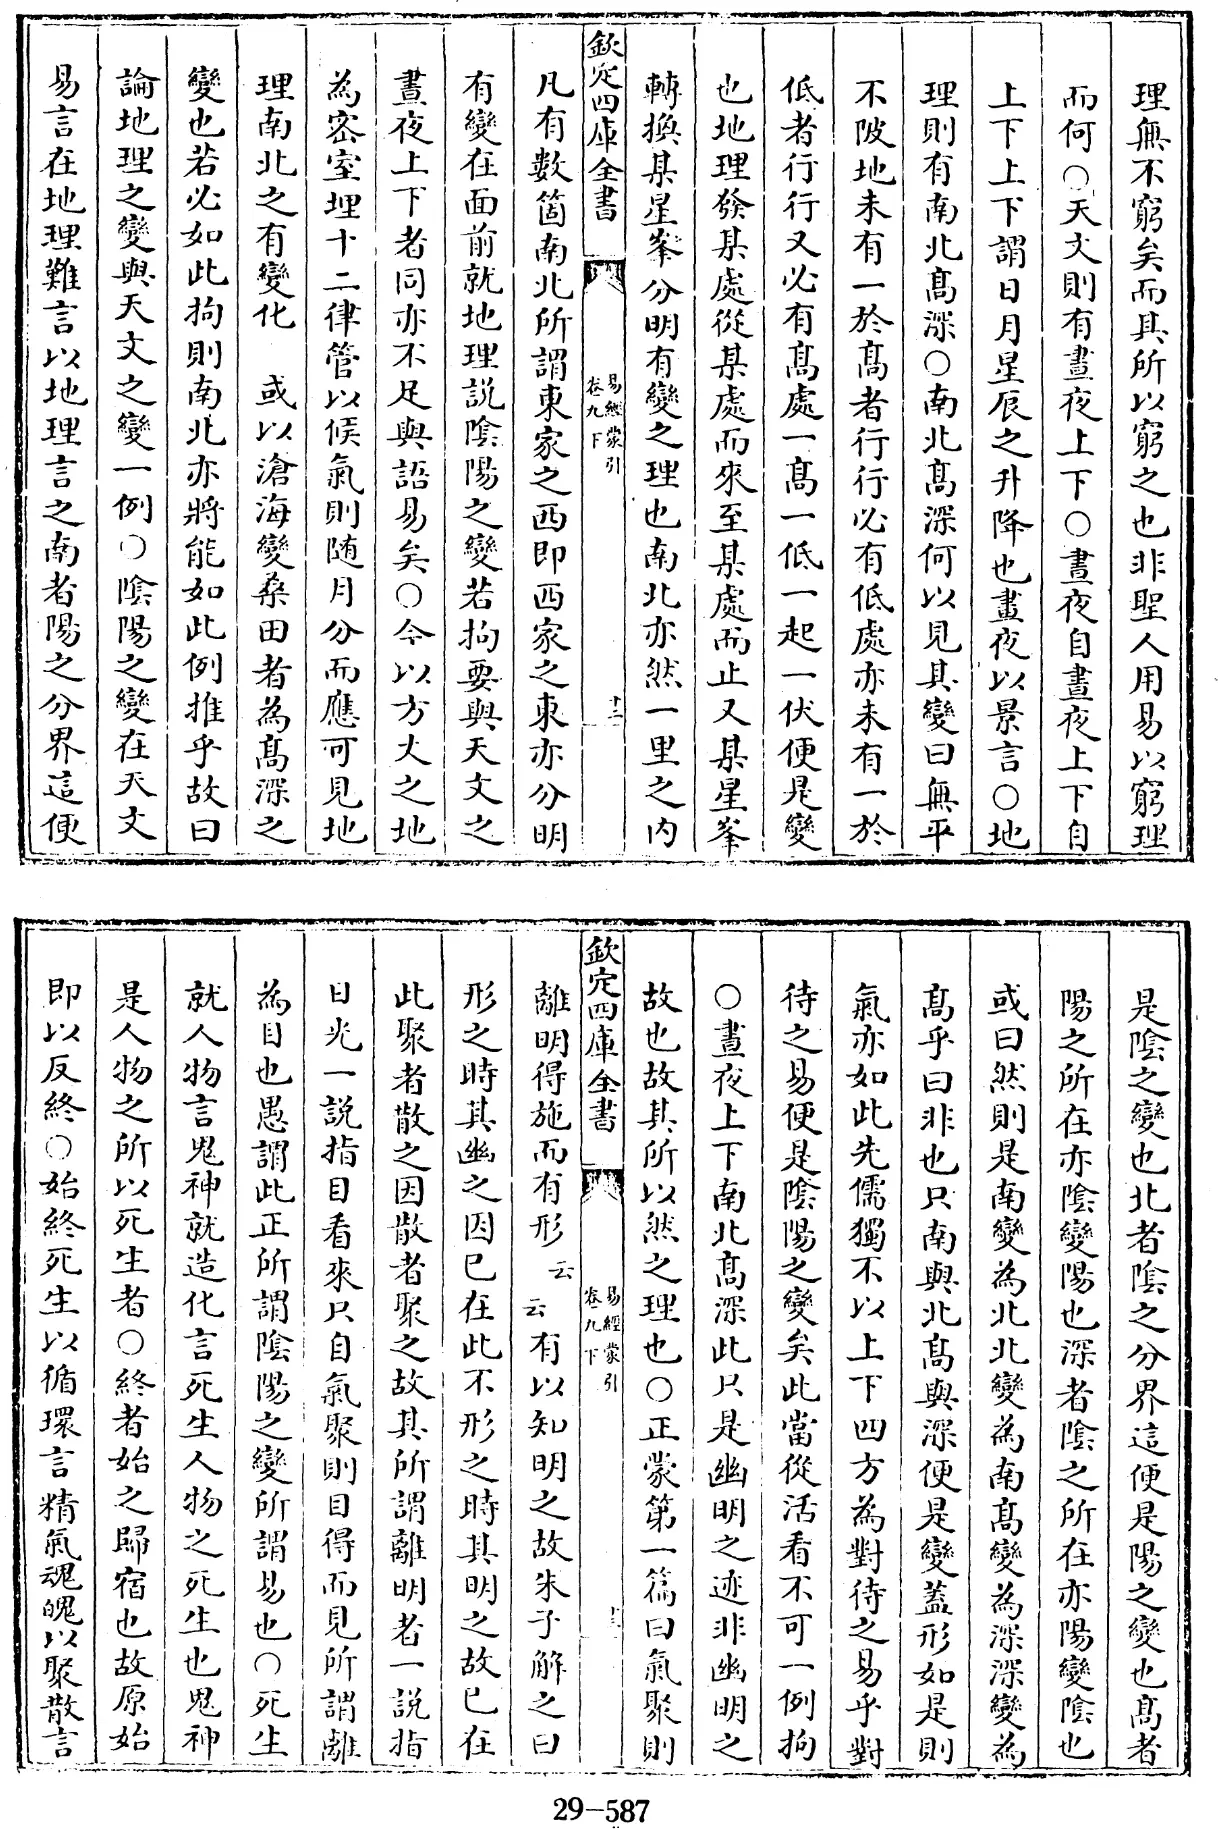 理無不窮矣而其所以窮之也非聖人用易以窮理
而何○天文則有晝夜上下○晝夜自晝夜上下自
上下上下謂日月星辰之升降也晝夜以景言○地
理則有南北髙深○南北髙深何以見其變曰無平
不陂地未有一於髙者行行必有低處亦未有一於
低者行行又必有髙處一髙一低一起一伏便是變
也地理發某處從某處而來至某處而止又某星峯
轉換某星峯分明有變之理也南北亦然一里之内
欽定四庫全書
易經蒙引
卷九下
十二
凡有數箇南北所謂東家之西即西家之東亦分明
有變在面前就地理説陰陽之變若拘要與天文之
晝夜上下者同亦不足與語易矣○今以方丈之地
為密室埋十二律管以候氣則随月分而應可見地
理南北之有變化　或以滄海變桑田者為髙深之
變也若必如此拘則南北亦將能如此例推乎故曰
論地理之變與天文之變一例○陰陽之變在天文
易言在地理難言以地理言之南者陽之分界這便
是陰之變也北者陰之分界這便是陽之變也髙者
陽之所在亦陰變陽也深者陰之所在亦陽變陰也
或曰然則是南變為北北變為南髙變為深深變為
髙乎曰非也只南與北髙與深便是變蓋形如是則
氣亦如此先儒獨不以上下四方為對待之易乎對
待之易便是陰陽之變矣此當從活看不可一例拘
○晝夜上下南北髙深此只是幽明之迹非幽明之
故也故其所以然之理也○正蒙第一篇曰氣聚則
欽定四庫全書
易經蒙引
卷九下
離明得施而有形云云有以知明之故朱子解之曰
形之時其幽之因已在此不形之時其明之故已在
此聚者散之因散者聚之故其所謂離明者一説指
日光一説指目看來只自氣聚則目得而見所謂離
為目也愚謂此正所謂陰陽之變所謂易也○死生
就人物言鬼神就造化言死生人物之死生也鬼神
是人物之所以死生者○終者始之歸宿也故原始
即以反終○始終死生以循環言精氣魂魄以聚散言
29-587